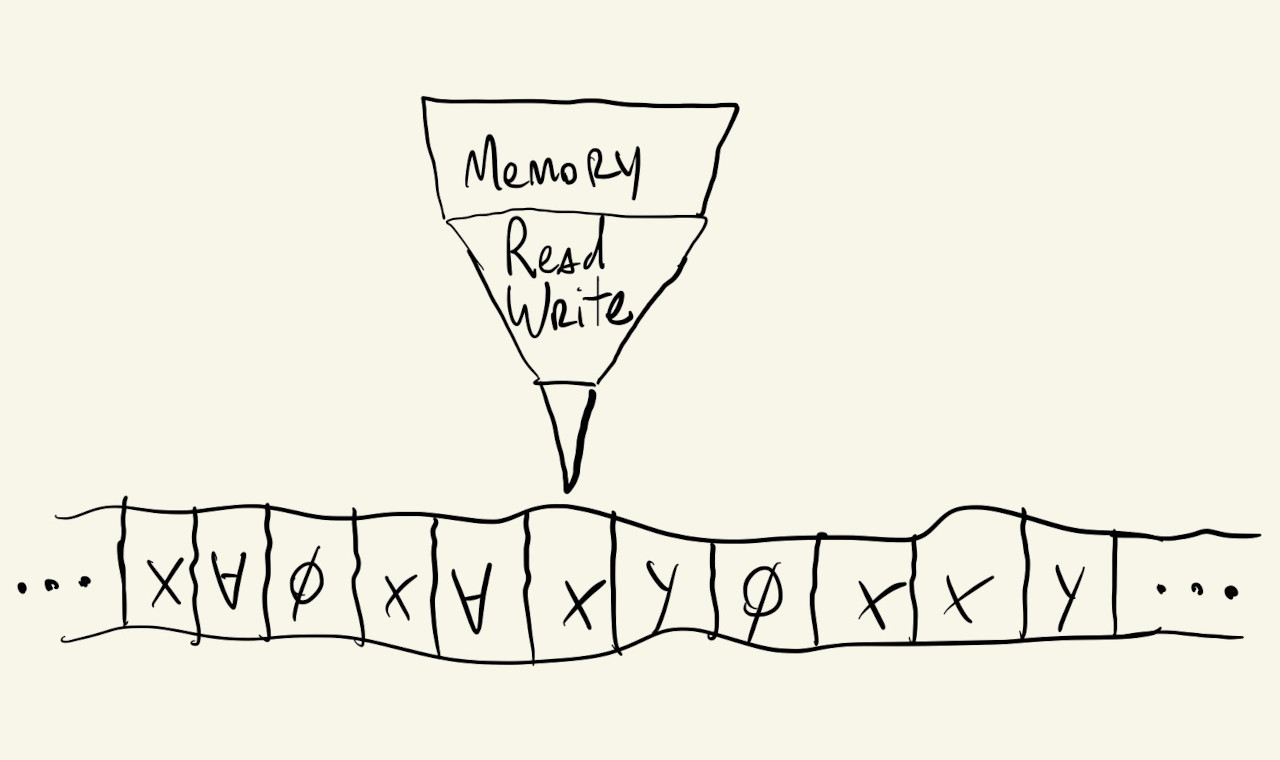 Memory
Read
Write
... X ∀ ∅ X ∀ X Y ∅ X X Y ...